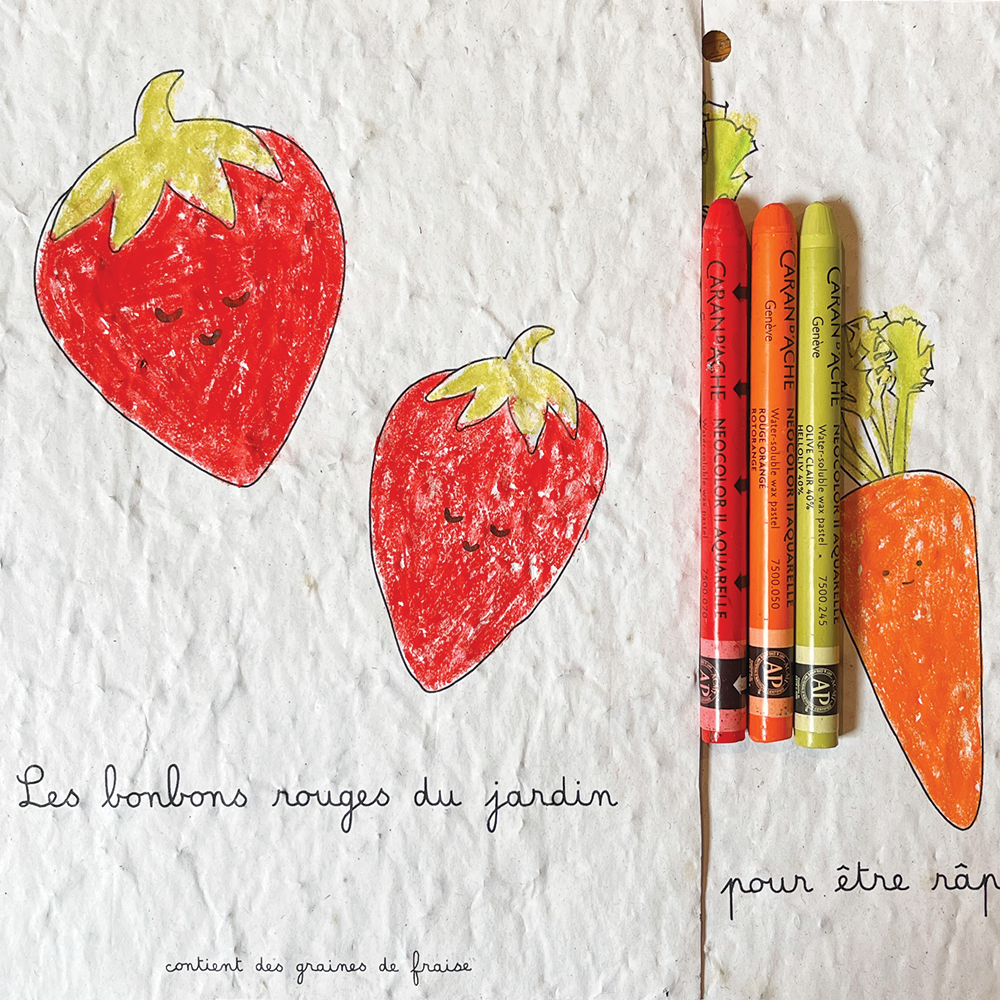 Les bonbons rouges du jardin
contient des graines de fraise
CARAN D'ACHE NEOCOLOR II AQUARELLE
Water-soluble wax pastel 7500.070
CARAN D'ACHE NEOCOLOR II AQUARELLE
Genève Water-soluble wax pastel 7500.050
ROUGE ORANGÉ
ROTORANGE
AP
CARAN D'ACHE NEOCOLOR II AQUARELLE
Genève Water-soluble wax pastel • 7500.245
OLIVE CLAIR 40%
HELLOLIV 40%
AP
pour être râp